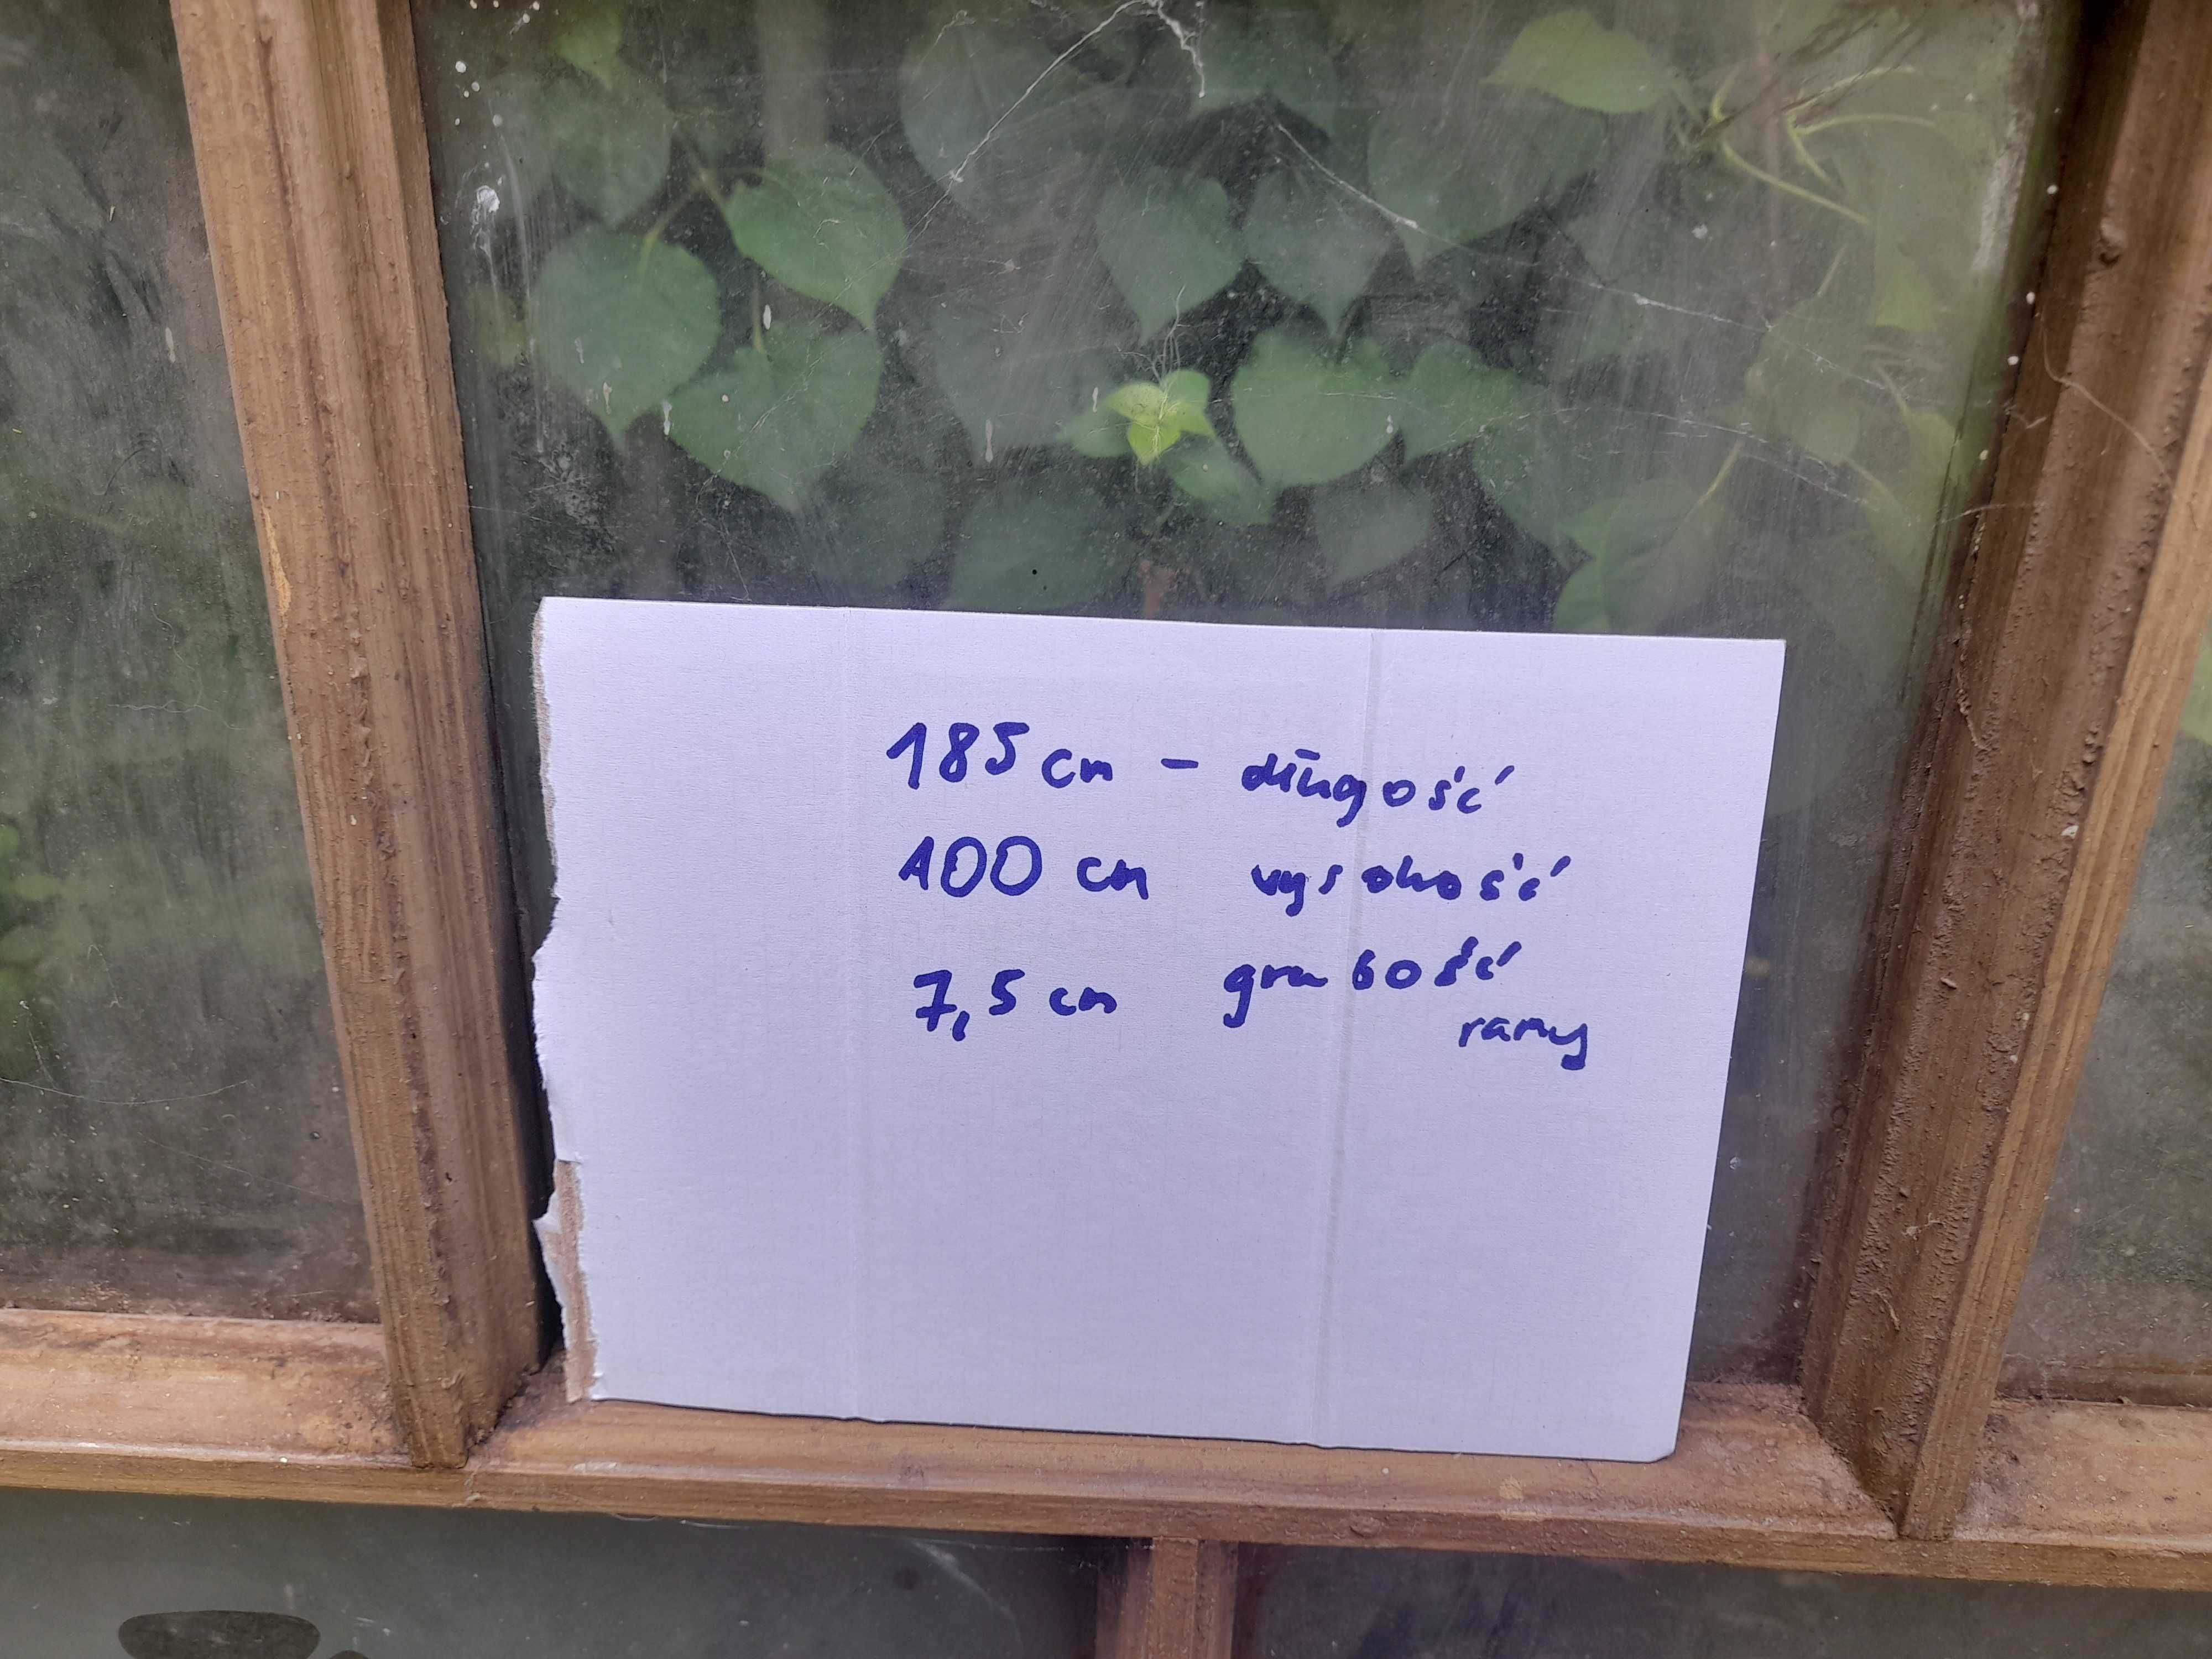 185 cm - długość
100 cm vysokość
7,5 cm grubość
ramy